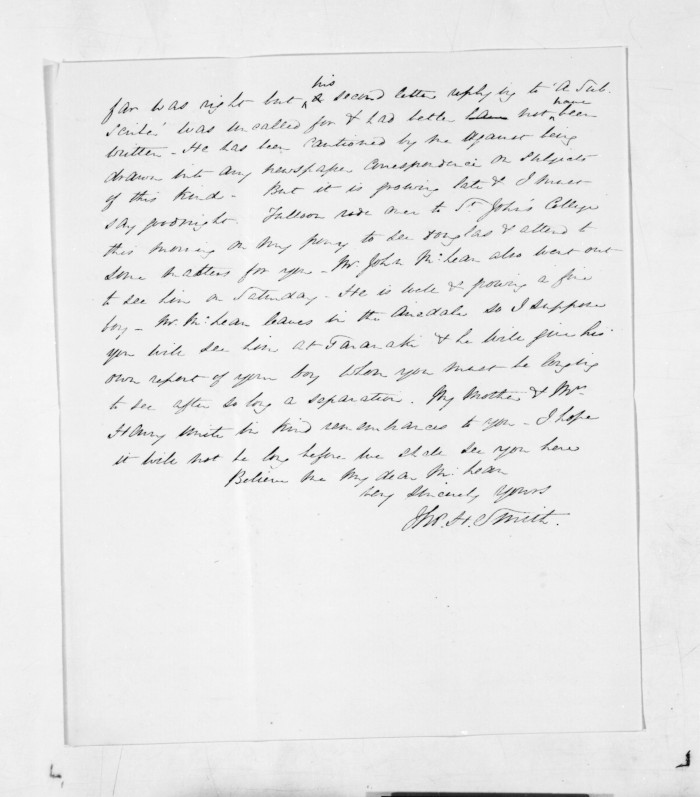 his
far was right but ^ a second letter replying to 'A Sub-
have
scriber' was uncalled for & had better not ^ been
written - He has been cautioned by me against being
drawn into any newspaper correspondence on subjects
of this kind - But it is growing late & I must
say goodnight. Fulloon rode over to St John's College
this morning on my pony to see Douglas & attend to
some matters for you - Mr. John McLean also went out
to see him on Saturday - He is well & growing a fine
boy - Mr. McLean leaves in the Airedale so I suppose
you will see him at Taranaki & he will give his
own report of your boy whom you must be longing
to see after so long a separation. My Mother & Mrs
Henry unite in kind remembrances to you - I hope
it will not be long before we shall see you here
Believe me My dear McLean
Very sincerely yours
Jno. H. Smith.